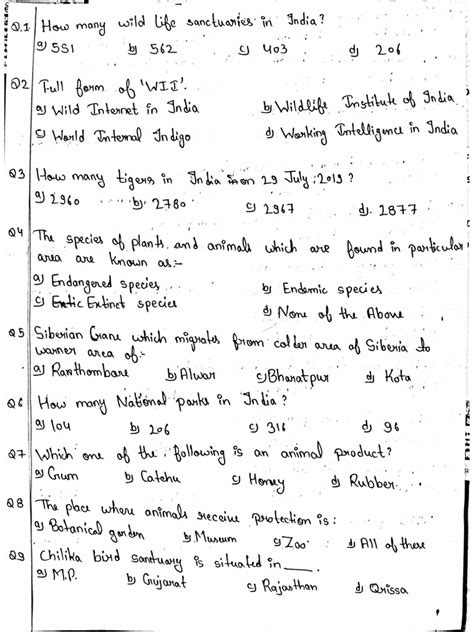 Q.1 How many wild life sanctuaries in India?
a) 551 b) 562 c) 403 d) 206
Q2 Full form of 'WII'.
a) Wild Internet in India b) Wildlife Institute of India
c) World Internal Indigo d) Working Intelligence in India
Q3 How many tigers in India on 29 July 2019?
a) 2960 b) 2780 c) 2967 d) 2877
Q4 The species of plants and animals which are found in particular
area are known as:-
a) Endangered species b) Endemic species
c) Extinct species d) None of the Above
Q5 Siberian Crane which migrates from colder area of Siberia to
warner area of:-
a) Ranthombare b) Alwar c) Bharatpur d) Kota
Q6 How many National parks in India?
a) 104 b) 206 c) 316 d) 96
Q7 Which one of the following is an animal product?
a) Gum b) Catehu c) Honey d) Rubber
Q8 The place where animals receive protection is:
a) Botanical garden b) Museum c) Zoo d) All of these
Q9 Chilika bird santuary is situated in ___.
a) M.P. b) Gujarat c) Rajasthan d) Orissa